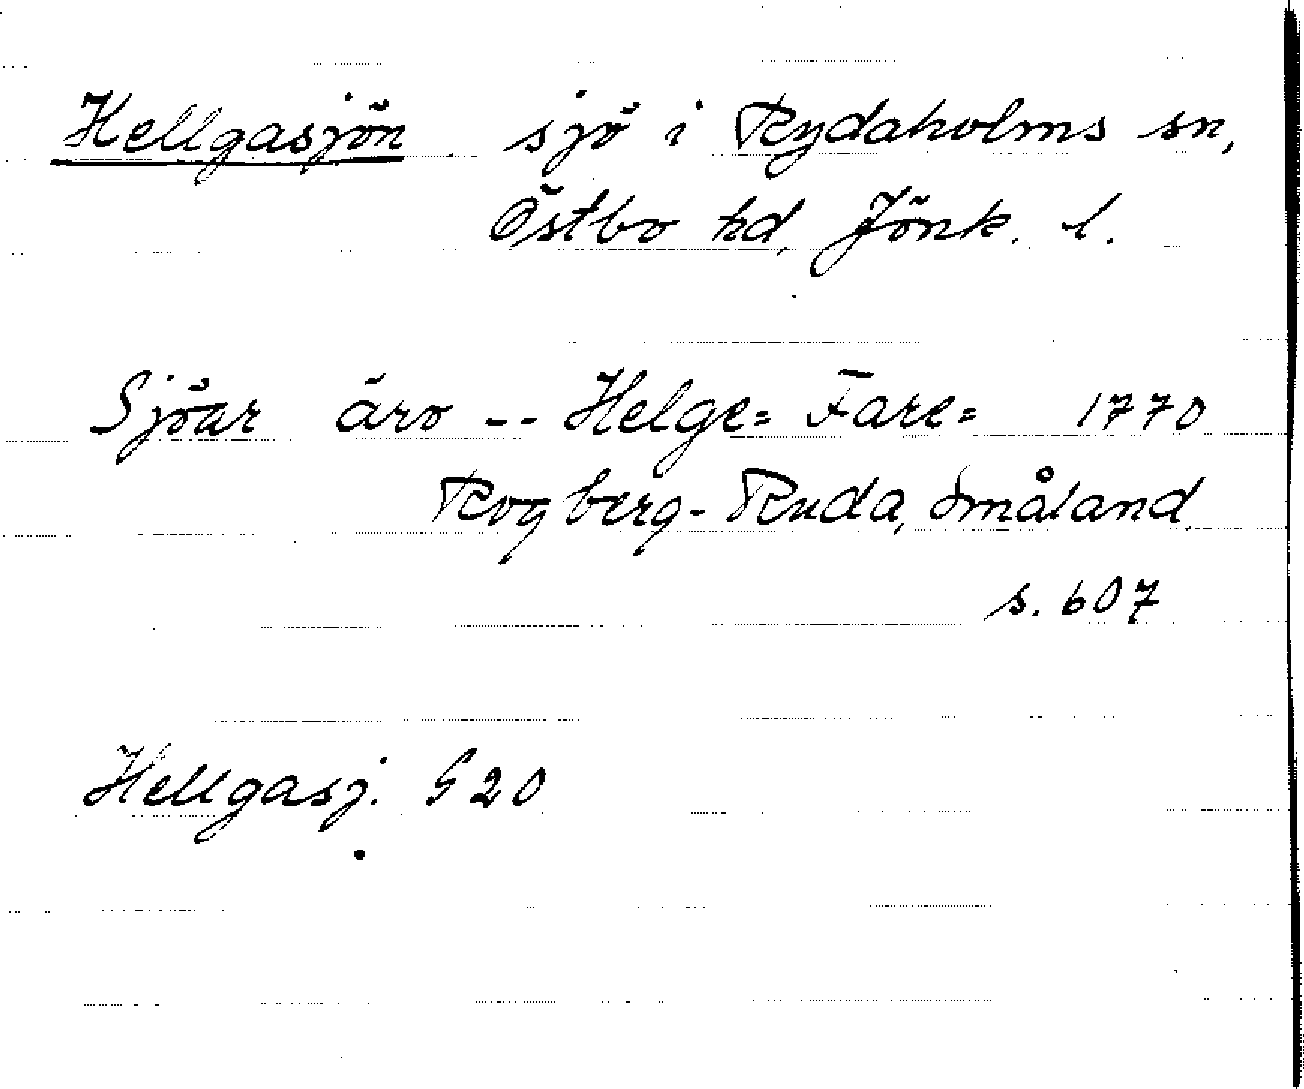 Hellgasjön sjö i Rydaholms sn,
Östbo hd, Jönk. l.
Sjöar äro -- Helge= Fare= 1770
Rogberg-Ruda, Småland
s. 607
Hellgasj. G 20